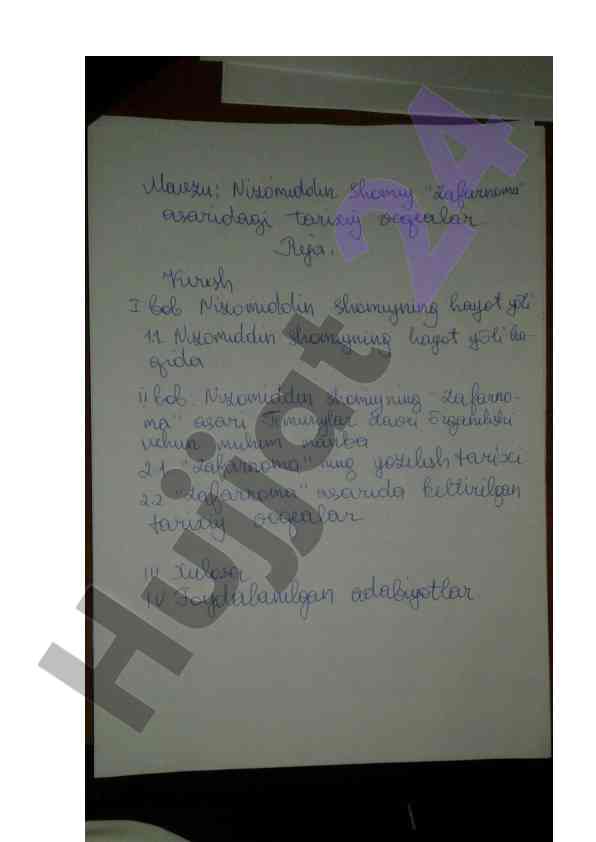 Mavzu: Nizomiddin Shomiy "Zafarnoma"
asaridagi tarixiy voqealar
Reja.
Kirish
I bob Nizomiddin Shomiyning hayot yo'li
1.1 Nizomiddin Shomiyning hayot yo'li ha-
qida
II bob. Nizomiddin Shomiyning "Zafarno-
ma" asari Temuriylar davri o'rganilishi
uchun muhim manba
2.1 "Zafarnoma" ning yozilish tarixi
2.2 "Zafarnoma" asarida keltirilgan
tarixiy voqealar
III Xulosa
IV Foydalanilgan adabiyotlar.
Hujjat 24